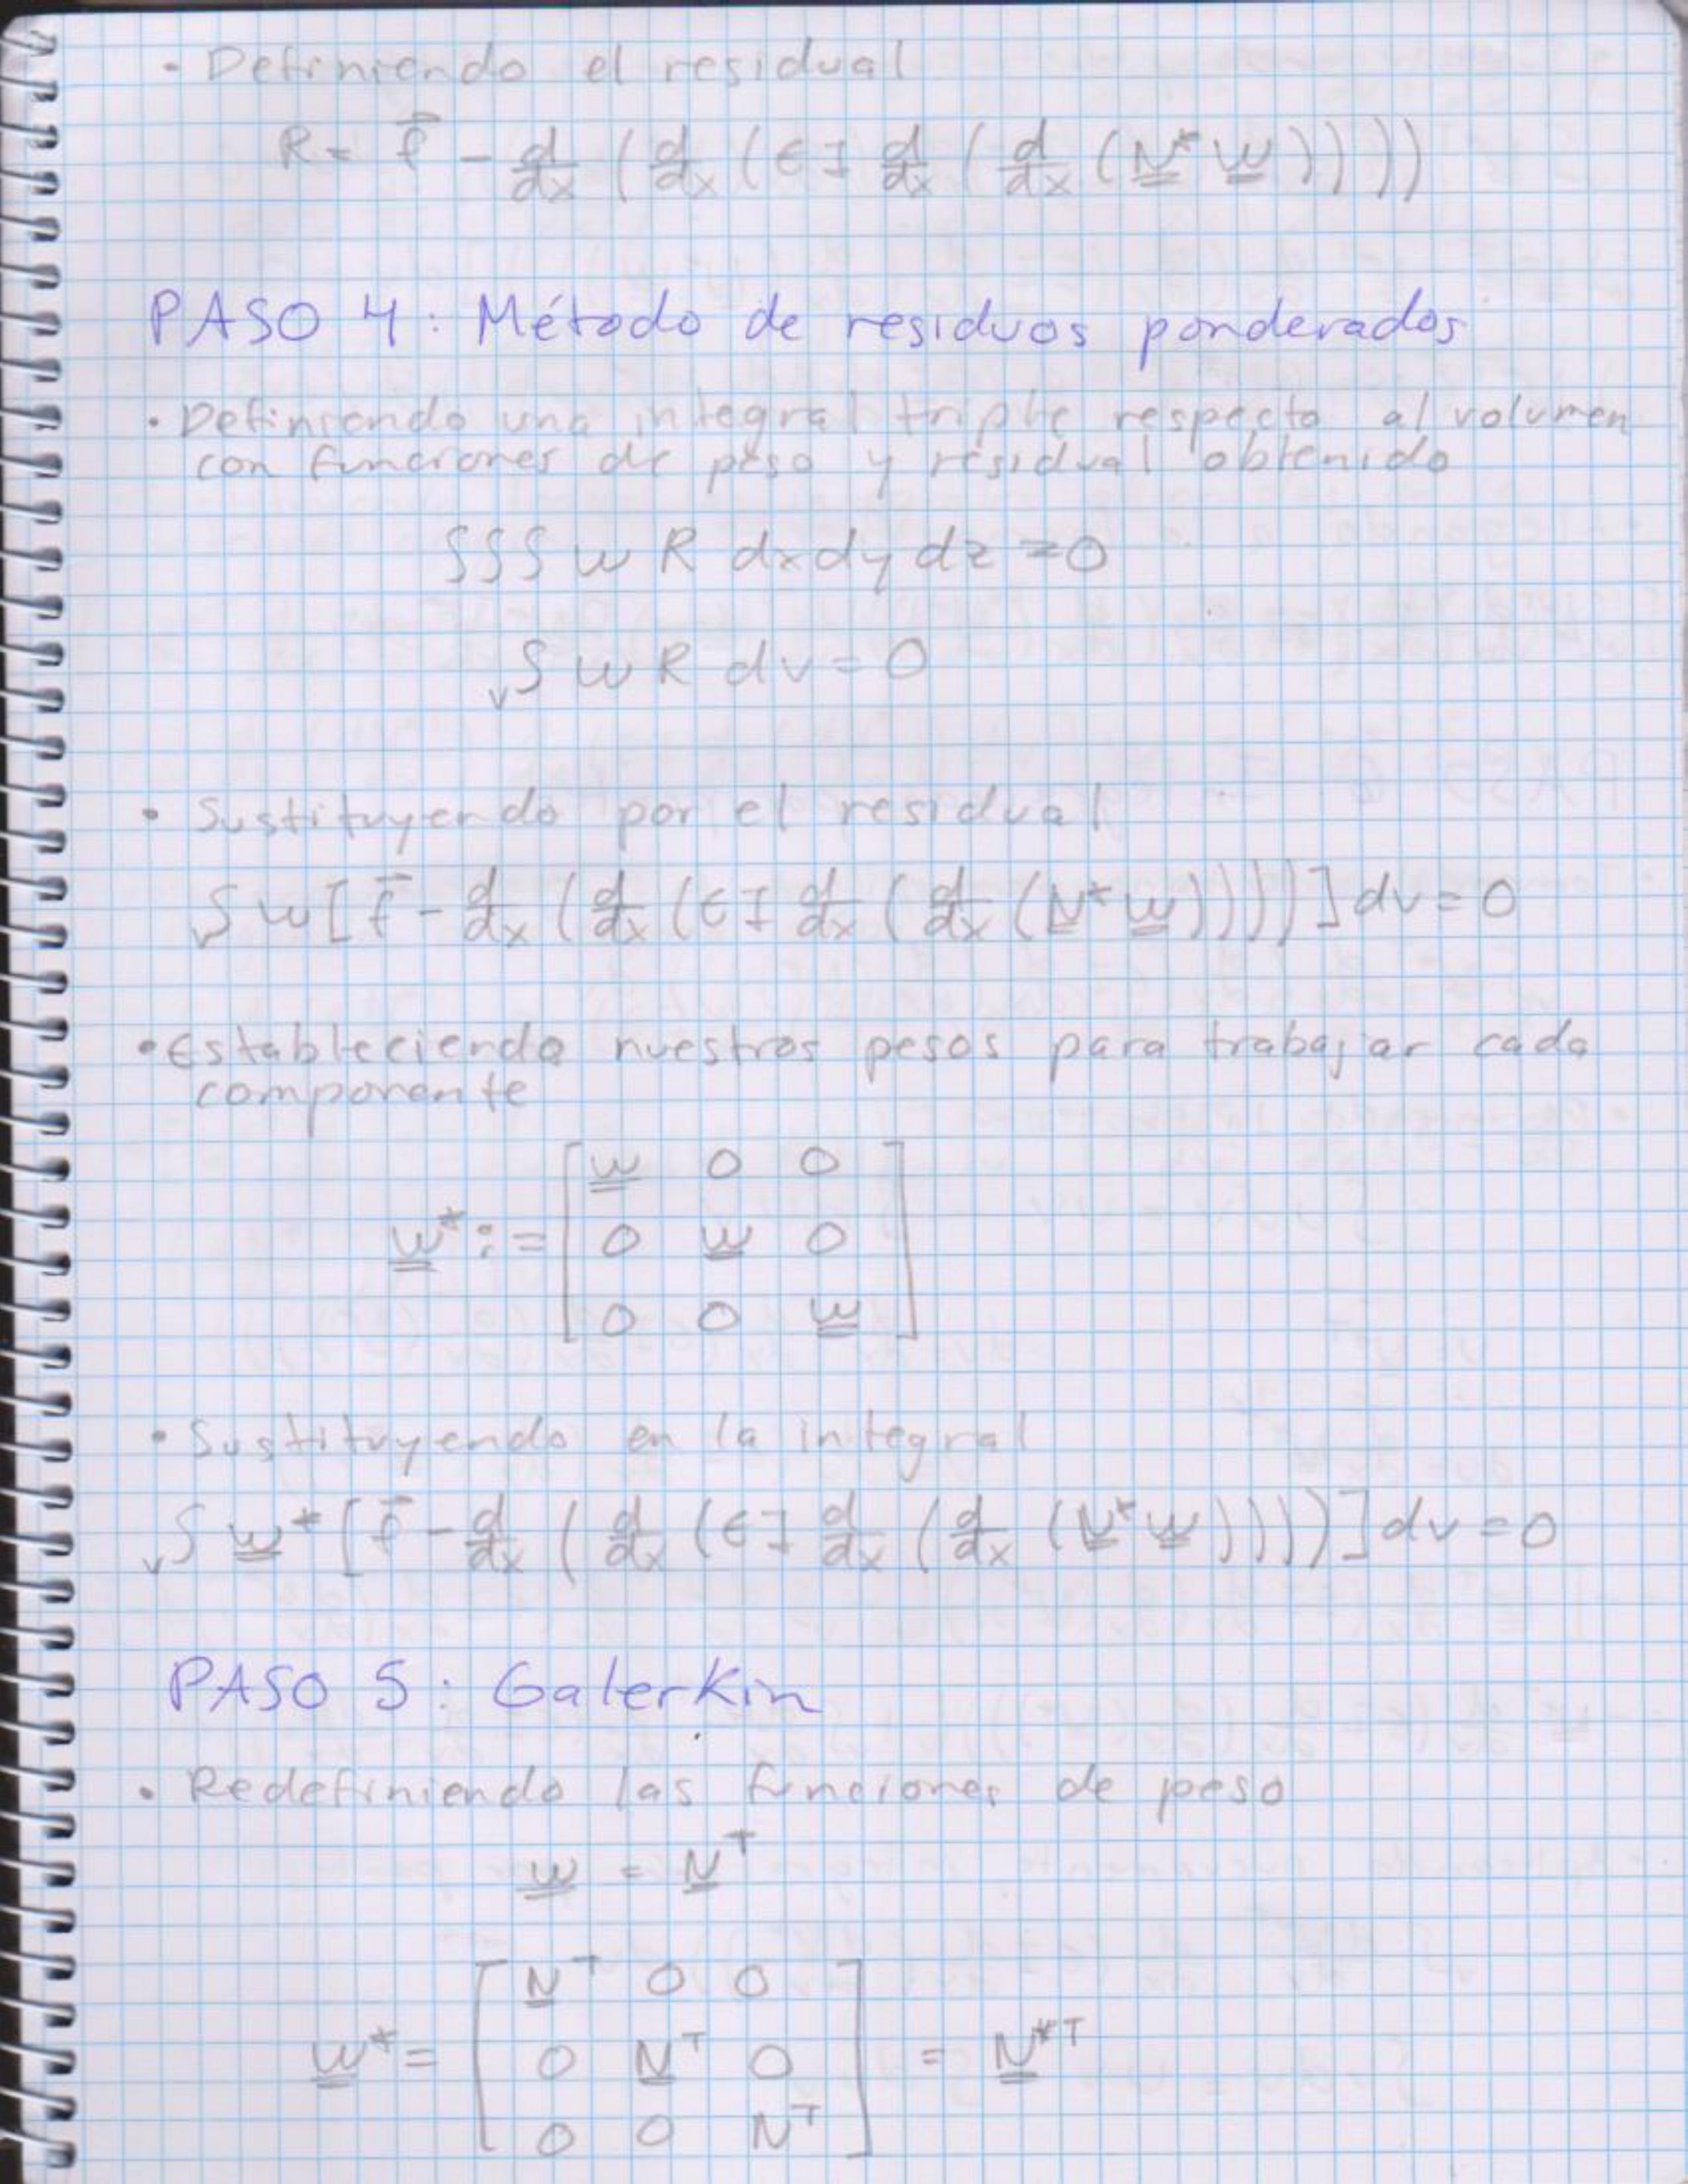 • Definiendo el residual
R = f⃗ - d/dx (d/dx (EI d/dx (d/dx (N* W))))
PASO 4: Método de residuos ponderados
• Definiendo una integral triple respecto al volumen
con funciones de peso y residual obtenido
∫∫∫ w R dxdydz = 0
ᵥ∫ w R dv = 0
• Sustituyendo por el residual
ᵥ∫ w [f⃗ - d/dx (d/dx (EI d/dx (d/dx (N* W))))] dv = 0
• Estableciendo nuestros pesos para trabajar cada
componente
w* := [w 0 0
0 w 0
0 0 w]
• Sustituyendo en la integral
ᵥ∫ w* [f⃗ - d/dx (d/dx (EI d/dx (d/dx (N* W))))] dv = 0
PASO 5: Galerkin
• Redefiniendo las funciones de peso
w = Nᵀ
w* = [Nᵀ 0 0
0 Nᵀ 0
0 0 Nᵀ] = N*ᵀ